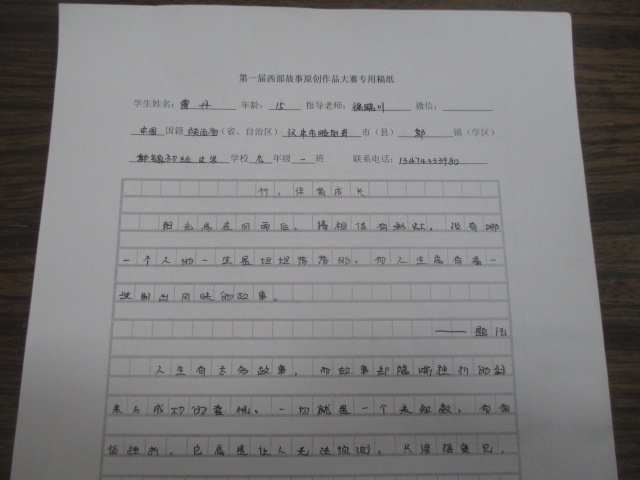 第一届西部故事原创作品大赛专用稿纸
学生姓名：雷丹 年龄：15 指导老师：徐晓川 微信：
中国国籍陕西省（省、自治区）汉中市略阳县市（县）郭镇（学区）
郭镇初级中学学校九年级一班 联系电话：13474333980
竹，伴我成长
阳光总在风雨后，请相信有彩虹，没有哪
一个人的一生是坦坦荡荡的。而人生总有着一
些别出风味的故事。
——题记
人生有太多故事，而故事却隐喻挫折的到
来与成功的喜悦。一切就是一个未知数，句句
它总是让人无法预测。只得接受它，